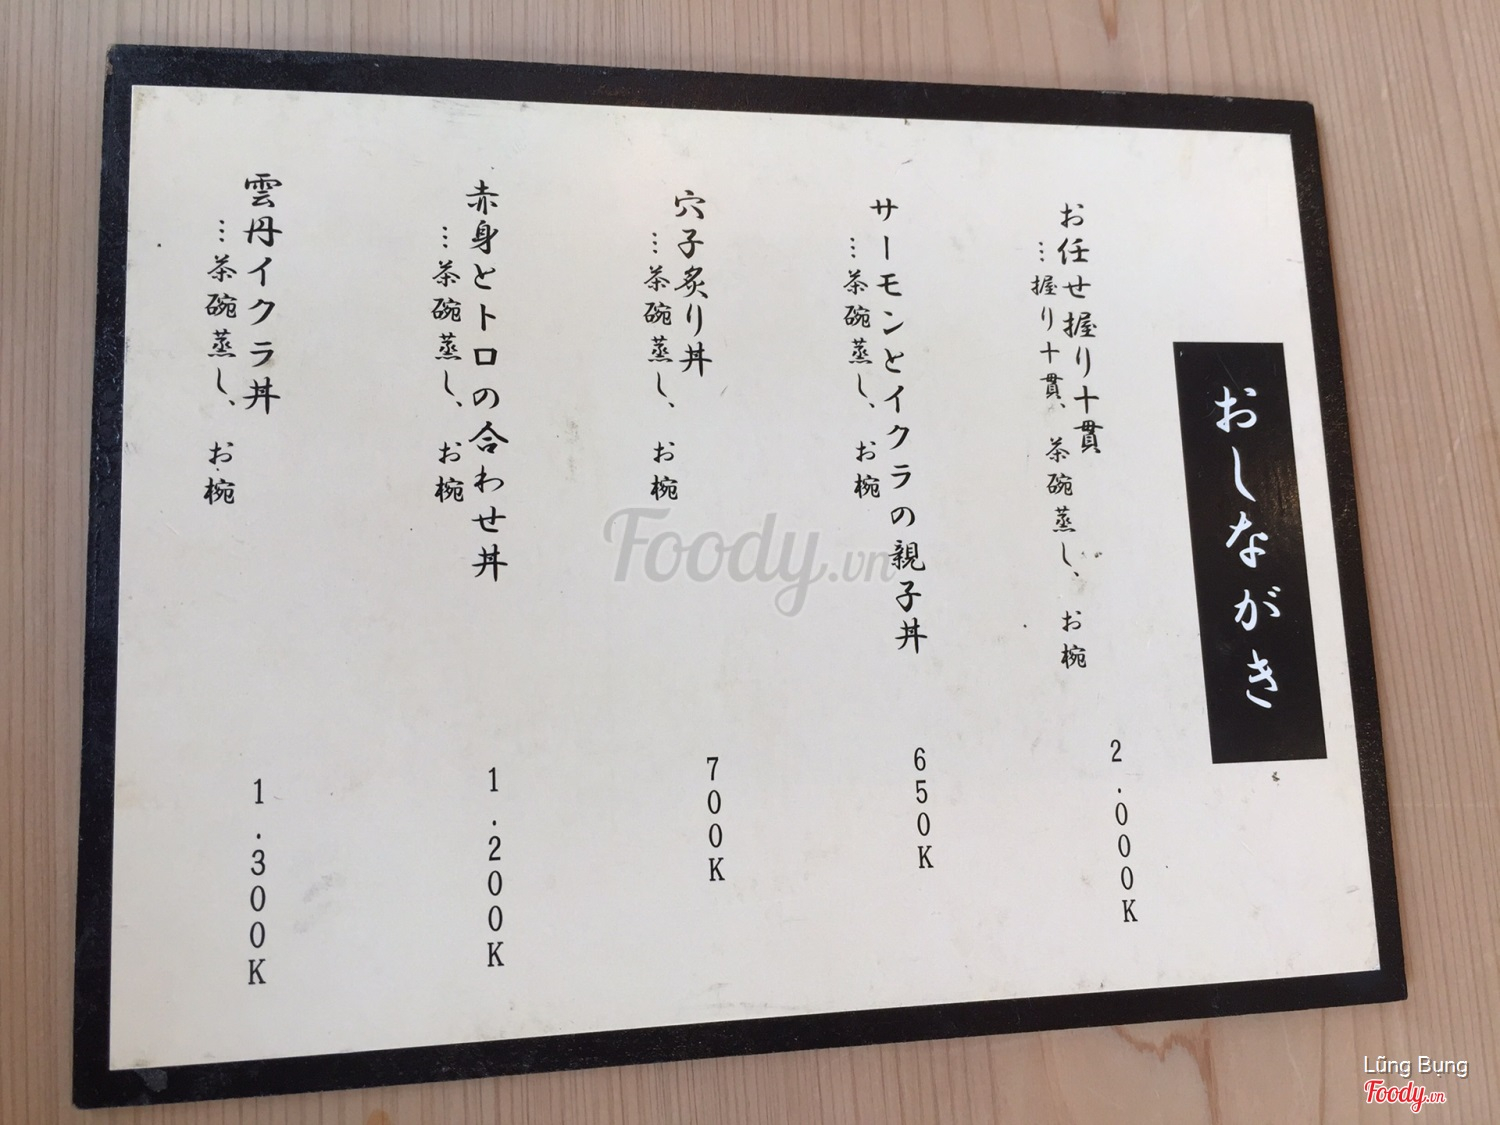 おしながき
お任せ握り十貫
…握り十貫、茶碗蒸し、お椀
2.000K
サーモンとイクラの親子丼
…茶碗蒸し、お椀
650K
穴子炙り丼
…茶碗蒸し、お椀
700K
赤身とトロの合わせ丼
…茶碗蒸し、お椀
1.200K
雲丹イクラ丼
…茶碗蒸し、お椀
1.300K
Foody.vn
Lũng Bụng
Foody.vn